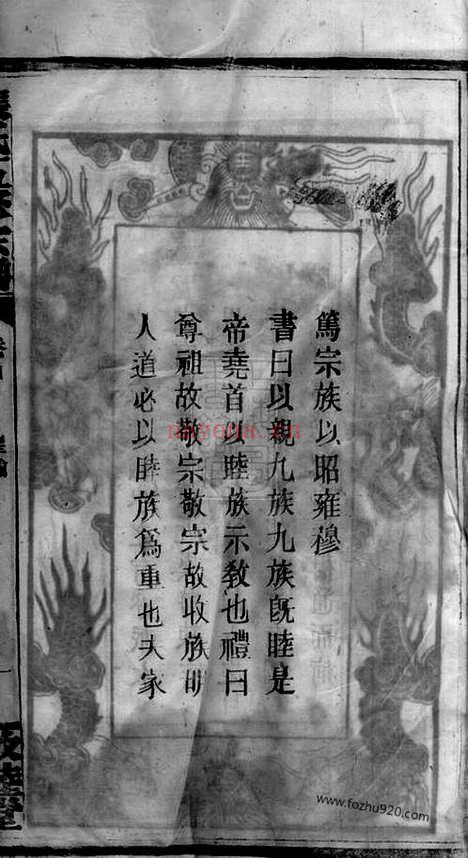 篤宗族以昭雍穆
書曰以親九族九族旣睦是
帝堯首以睦族示敎也禮曰
尊祖故敬宗敬宗故收族明
人道必以睦族為重也夫家
nayona.cn
www.fozhu920.com